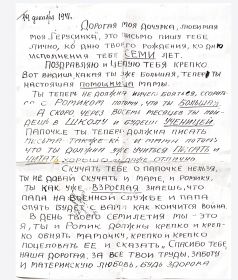 19 декабря 1941.
Дорогая моя дочурка, любимая
моя Герусинка, это письмо пишу тебе
лично, ко дню твоего рождения, ко дню
исполнения тебе СЕМИ лет.
Поздравляю и целую тебя крепко
Вот видишь какая ты уже большая, теперь ты
настоящая помощница мамы.
Ты теперь не должна ничего бояться,
с Ромиком потому, что ты БОЛЬШАЯ
А скоро через восемь месяцев ты пой-
дешь в ШКОЛУ и будешь УЧЕНИЦЕЙ
Папочке ты теперь должна писать
письма также как и мама потому
что ты должна уже уметь ПИСАТЬ и
ЧИТАТЬ хорошо и даже отлично
Скучать тебе о папочке нельзя,
ты не давай скучать и маме, и Ромику,
ты как уже ВЗРОСЛАЯ знаешь, что
папа на ВОЕННОЙ службе и папа
опять будет с вами как кончится война.
В день твоего семилетия мы - это
я, ты и Ромик должны крепко и креп-
ко обнять мамочку, крепко крепко
поцеловать ее и сказать „Спасибо тебе,
наша дорогая, за все твои труды, заботу
и материнскую любовь, будь здорова